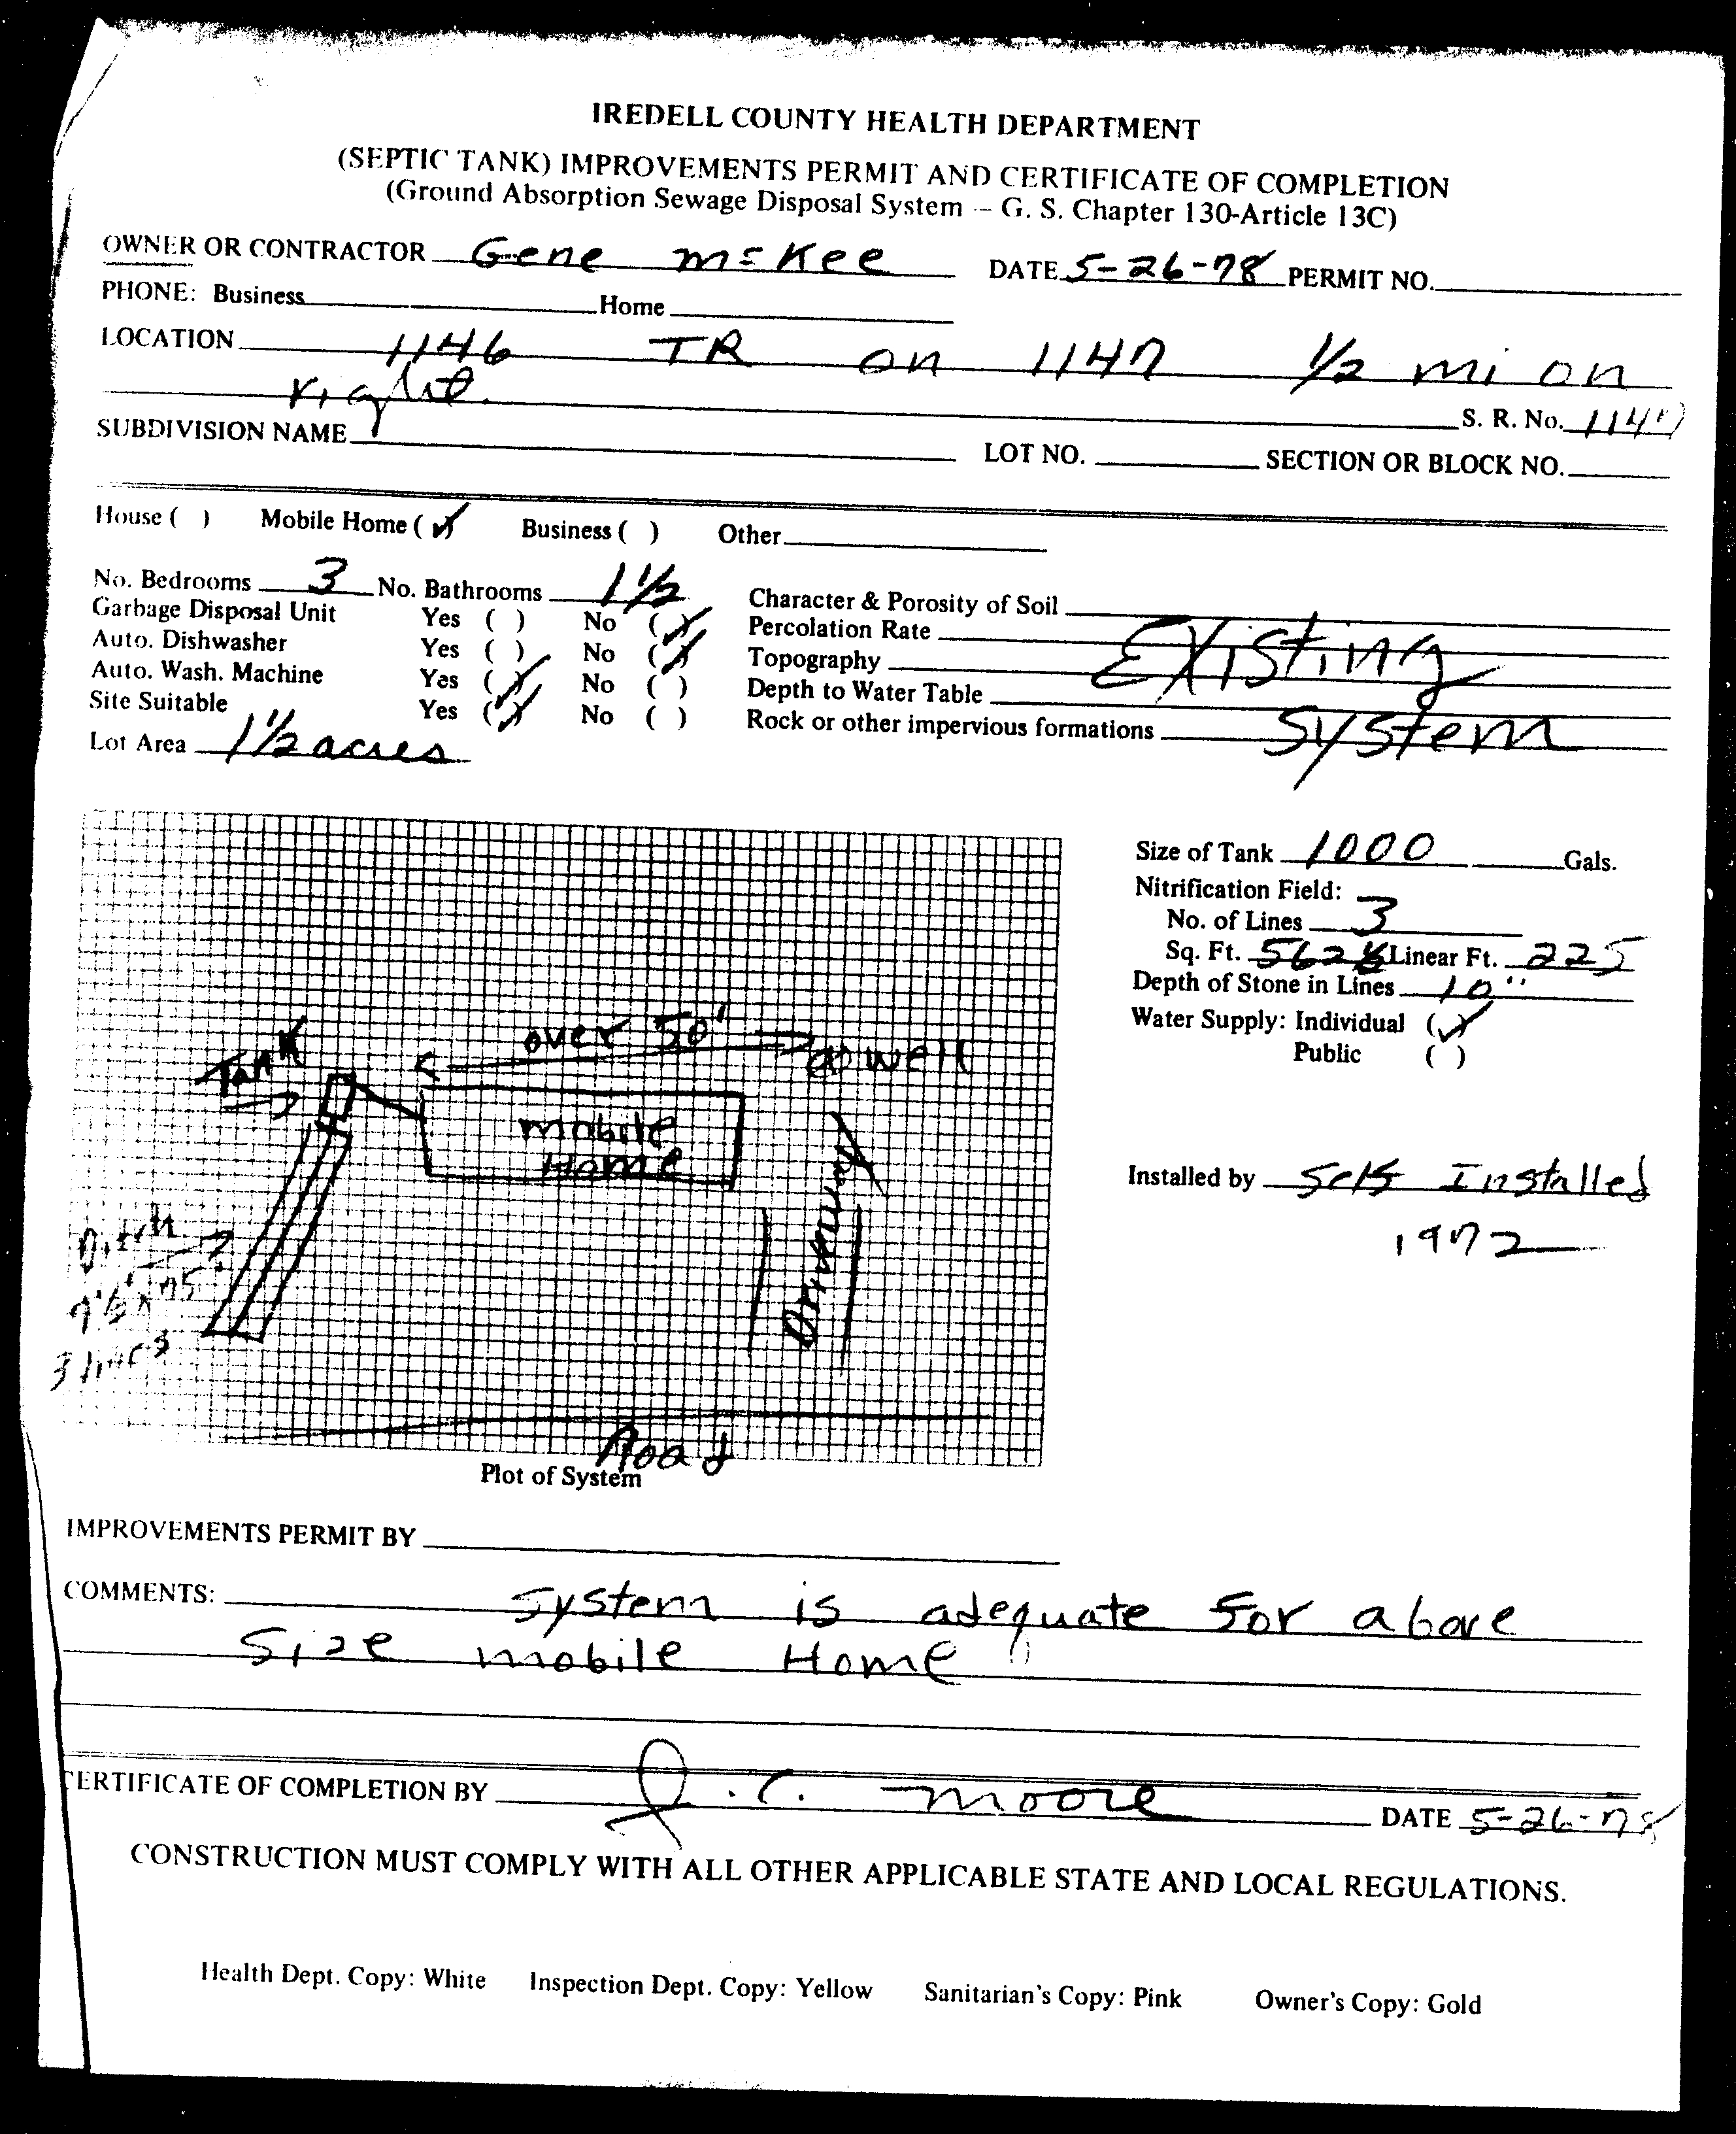 IREDELL COUNTY HEALTH DEPARTMENT
(SEPTIC TANK) IMPROVEMENTS PERMIT AND CERTIFICATE OF COMPLETION
(Ground Absorption Sewage Disposal System — G. S. Chapter 130-Article 13C)
OWNER OR CONTRACTOR Gene McKee DATE 5-26-78 PERMIT NO.
PHONE: Business Home
LOCATION 1146 TR on 1147 1/2 mi on
right S. R. No. 1147
SUBDIVISION NAME LOT NO. SECTION OR BLOCK NO.
House ( ) Mobile Home (✓) Business ( ) Other
No. Bedrooms 3 No. Bathrooms 1 1/2
Garbage Disposal Unit Yes ( ) No (✓)
Auto. Dishwasher Yes ( ) No (✓)
Auto. Wash. Machine Yes (✓) No ( )
Site Suitable Yes (✓) No ( )
Lot Area 1 1/2 acres
Character & Porosity of Soil
Percolation Rate
Topography Existing
Depth to Water Table
Rock or other impervious formations System
Size of Tank 1000 Gals.
Nitrification Field:
No. of Lines 3
Sq. Ft. 562 Linear Ft. 225
Depth of Stone in Lines 10"
Water Supply: Individual (✓)
Public ( )
Installed by Self Installed
1972
over 50'
Tank
well
mobile
Home
Driveway
Ditch
3 lines
Road
Plot of System
IMPROVEMENTS PERMIT BY
COMMENTS: System is adequate for above
size mobile Home
CERTIFICATE OF COMPLETION BY J. C. Moore DATE 5-26-78
CONSTRUCTION MUST COMPLY WITH ALL OTHER APPLICABLE STATE AND LOCAL REGULATIONS.
Health Dept. Copy: White Inspection Dept. Copy: Yellow Sanitarian's Copy: Pink Owner's Copy: Gold